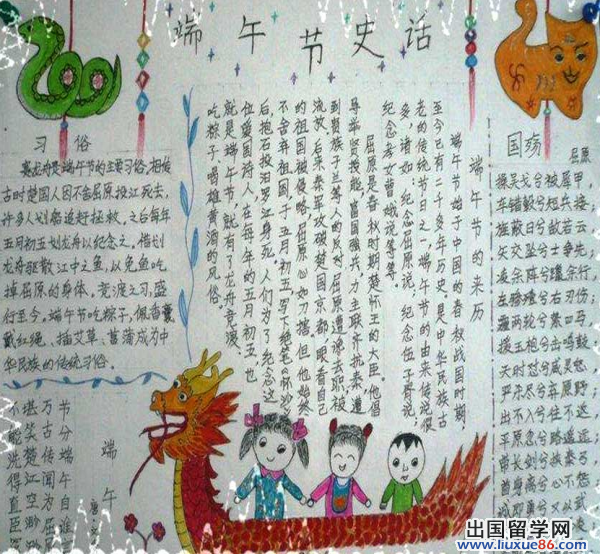 端午节史话
习俗
赛龙舟是端午节的主要习俗。相传
古时楚国人因不舍屈原投江死去，
许多人划船追赶拯救。之后每年
五月初五划龙舟以纪念之。借划
龙舟驱散江中之鱼，以免鱼吃
掉屈原的身体。竞渡之习，盛
行至今。端午节吃粽子，佩香囊
戴红绳、插艾草、菖蒲成为中
华民族的传统习俗。
端午节的来历
端午节始于中国的春秋战国时期
至今已有二千多年历史。是中华民族古
老的传统节日之一，端午节的由来传说很
多，诸如：纪念屈原说；纪念伍子胥说；
纪念孝女曹娥说等等。
屈原是春秋时期楚怀王的大臣。他倡
导举贤授能，富国强兵，力主联齐抗秦，遭
到贵族子兰等人的反对，屈原遭谗去职被
流放。后来秦军攻破楚国京都。眼看自己
的祖国被侵略，屈原心如刀割，但他始终
不舍弃祖国，于五月初五写下绝笔《怀沙》
后，抱石投汨罗江身死。人们为了纪念这
位爱国诗人，在每年的五月初五，也
就是端午节，就有了龙舟竞渡、
吃粽子、喝雄黄酒的风俗。
国殇
屈原
操吴戈兮被犀甲，
车错毂兮短兵接。
旌蔽日兮敌若云，
矢交坠兮士争先。
凌余阵兮躐余行，
左骖殪兮右刃伤；
霾两轮兮絷四马，
援玉枹兮击鸣鼓。
天时怼兮威灵怒，
严杀尽兮弃原野；
出不入兮往不返，
平原忽兮路遥远；
带长剑兮挟秦弓，
首身离兮心不惩；
诚既勇兮又以武
端午
唐
节分端午自谁
万古传闻为屈
堪笑楚江空渺
不能洗得直臣
出国留学网
www.liuxue86.com